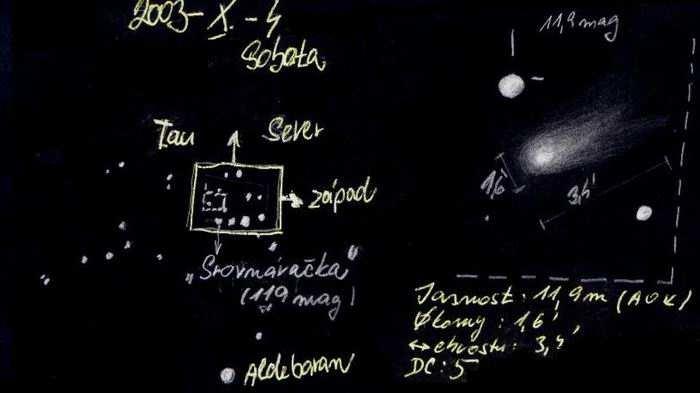 2003-X.-4
Sobota
Tau Sever
západ
"Srovnávačka"
(119 mag)
Aldebaran
11,9 mag
1,6'
3,4'
Jasnost: 11,9 m (AOK)
Ø komy: 1,6'
↔ chvostu: 3,4'
DC: 5